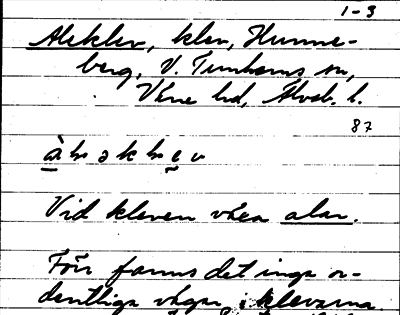 1-3
Aleklev, klev, Hunne-
berg, V. Tunhems sn,
Väne hd, Älvsb. l.
87
Vid kleven växa alar.
Förr fanns det inga or-
dentliga vägar, i klevarna